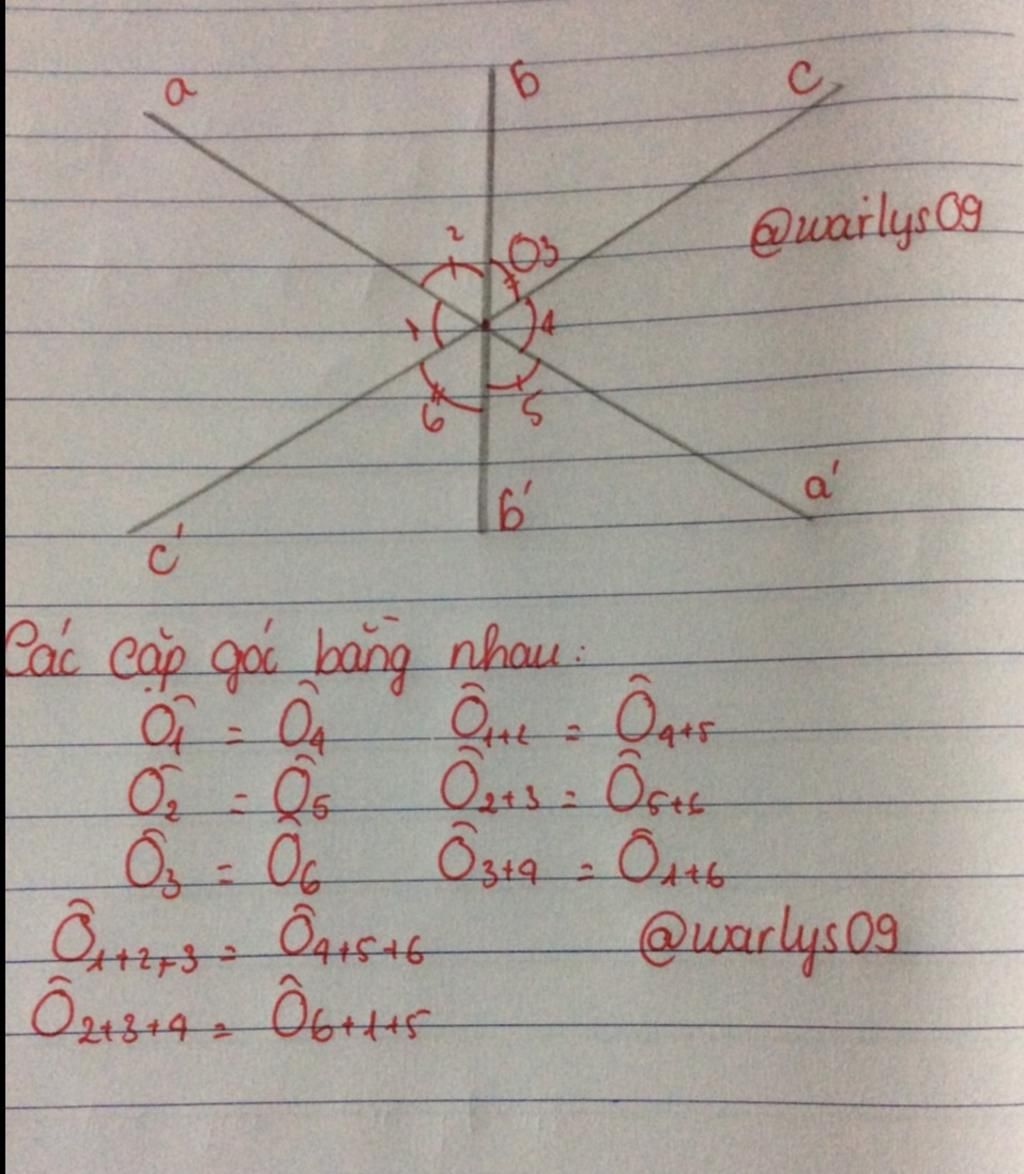 a b c
@warlys09
2 O3
1 4
6 5
b' a'
c'
Các cặp góc bằng nhau:
Ô1 = Ô4 Ô1+2 = Ô4+5
Ô2 = Ô5 Ô2+3 = Ô5+6
Ô3 = Ô6 Ô3+4 = Ô1+6
Ô1+2+3 = Ô4+5+6 @warlys09
Ô2+3+4 = Ô6+1+5